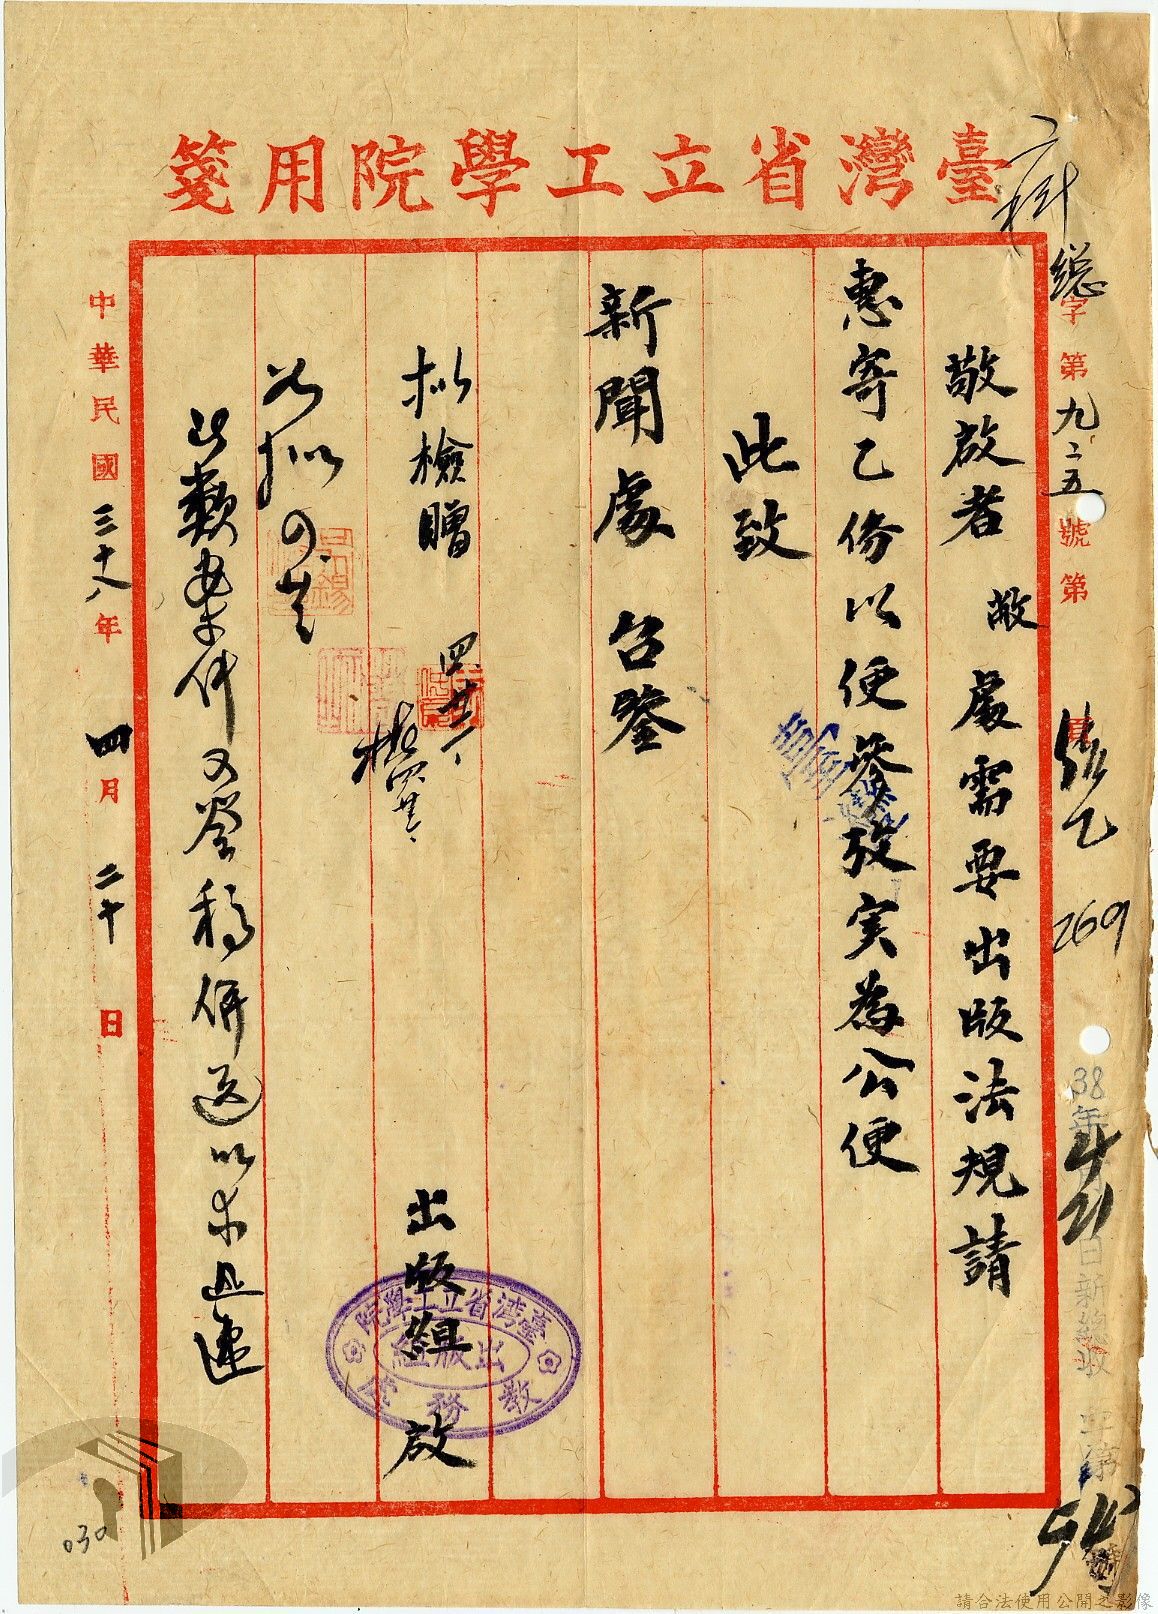 臺灣省立工學院用箋
二科
總字第九二五號第 頁
張乙
269
38年4月21日新總收字第
號
敬啟者 敝處需要出版法規請
惠寄乙份以便參攷实為公便
此致
新聞處 台鑒
出版組 啟
臺灣省立工學院
出版組
教務處
拟檢贈
四廿一
如拟
此類案件
稿併送以求迅速
中華民國三十八年 四月 二十日
030
請合法使用公開之影像